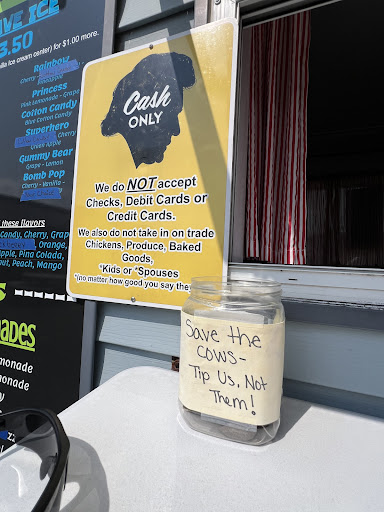 IVE ICE
3.50
illa Ice cream center) for $1.00 more.
Rainbow
Cherry
Pineapple
Princess
Pink Lemonade - Grape
Cotton Candy
Blue Cotton Candy
Superhero
Cherry
Green Apple
Gummy Bear
Grape - Lemon
Bomb Pop
Cherry - Vanilla -
these flavors
Candy, Cherry, Grap
Orange,
pple, Pina Colada,
ut, Peach, Mango
ades
monade
monade
Cash
ONLY
We do NOT accept
Checks, Debit Cards or
Credit Cards.
We also do not take in on trade
Chickens, Produce, Baked
Goods,
*Kids or *Spouses
*(no matter how good you say the
Save the
cows-
Tip Us, Not
Them!